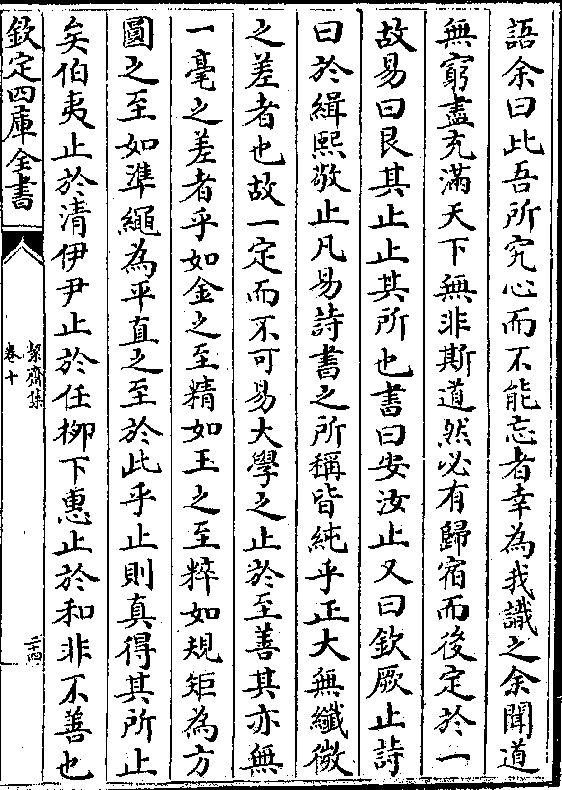 語余曰此吾所究心而不能忘者幸為我識之余聞道
無窮盡充滿天下無非斯道然必有歸宿而後定於一
故易曰艮其止止其所也書曰安汝止又曰欽厥止詩
曰於緝熙敬止凡易詩書之所稱皆純乎正大無纖微
之差者也故一定而不可易大學之止於至善其亦無
一毫之差者乎如金之至精如玉之至粹如規矩為方
圓之至如準繩為平直之至於此乎止則真得其所止
矣伯夷止於清伊尹止於任栁下惠止於和非不善也
欽定四庫全書
絜齋集
卷十
二十四